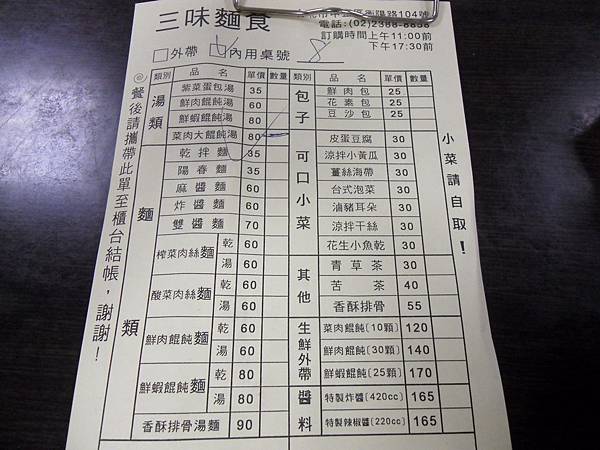 三味麵食
路104號
電話:(02)2388-
訂購時間上午11:00前
下午17:30前
□外帶 □內用桌號 8
◎餐後請攜帶此單至櫃台結帳，謝謝！
類別 品名 單價 數量
湯類
紫菜蛋包湯 35
鮮肉餛飩湯 60
鮮蝦餛飩湯 80
菜肉大餛飩湯 80
麵類
乾拌麵 35
陽春麵 35
麻醬麵 60
炸醬麵 60
雙醬麵 70
榨菜肉絲麵 乾 60
湯 60
酸菜肉絲麵 乾 60
湯 60
鮮肉餛飩麵 乾 60
湯 60
鮮蝦餛飩麵 乾 80
湯 80
香酥排骨湯麵 90
類別 品名 單價 數量
包子
鮮肉包 25
花素包 25
豆沙包 25
可口小菜
皮蛋豆腐 30
涼拌小黃瓜 30
薑絲海帶 30
台式泡菜 30
滷豬耳朵 30
涼拌干絲 30
花生小魚乾 30
其他
青草茶 30
苦茶 40
香酥排骨 55
生鮮外帶
菜肉餛飩〔10顆〕 120
鮮肉餛飩〔30顆〕 140
鮮蝦餛飩〔25顆〕 170
醬料
特製炸醬〔420cc〕 165
特製辣椒醬〔220cc〕 165
小菜請自取！